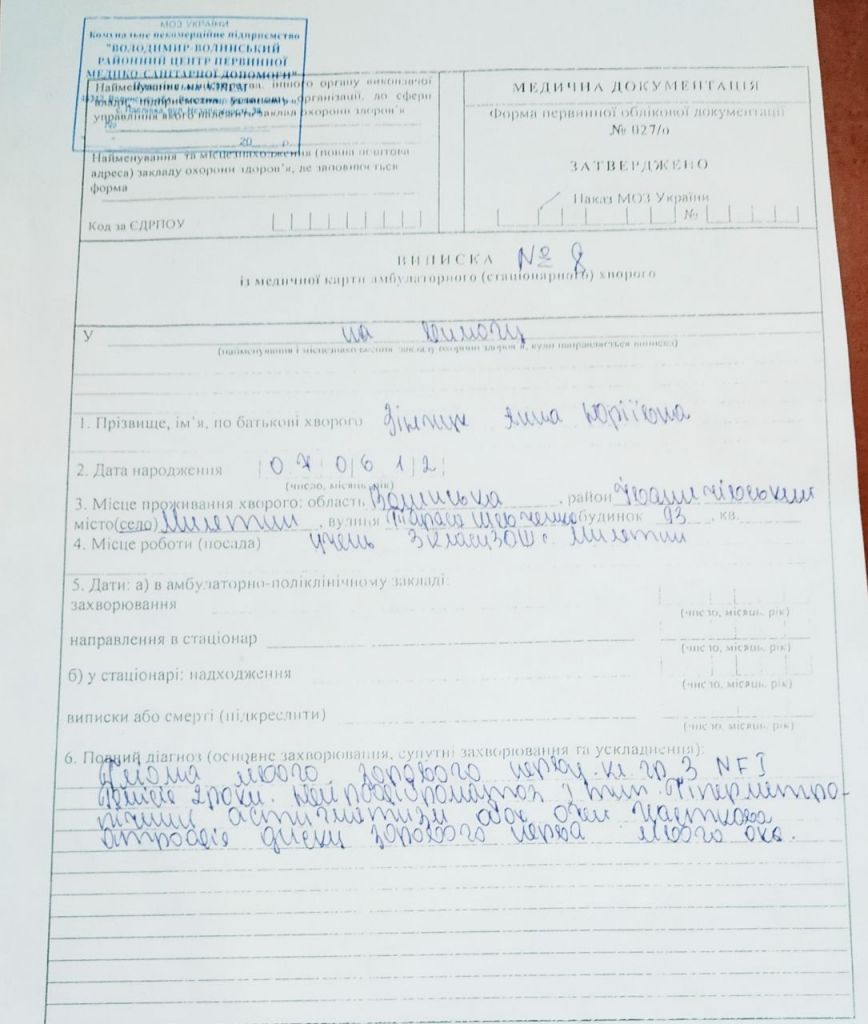 МОЗ УКРАЇНИ
Комунальне некомерційне підприємство
"ВОЛОДИМИР-ВОЛИНСЬКИЙ
РАЙОННИЙ ЦЕНТР ПЕРВИННОЇ
МЕДИКО-САНІТАРНОЇ ДОПОМОГИ"
Найменування міністерства, іншого органу виконавчої
влади, підприємства, установи, організації, до сфери
управління якого належить заклад охорони здоров'я
№
20 р.
Найменування та місцезнаходження (повна поштова
адреса) закладу охорони здоров'я, де заповнюється
форма
Код за ЄДРПОУ
МЕДИЧНА ДОКУМЕНТАЦІЯ
Форма первинної облікової документації
№ 027/о
ЗАТВЕРДЖЕНО
Наказ МОЗ України
№
ВИПИСКА № 8
із медичної карти амбулаторного (стаціонарного) хворого
У на вимогу
(найменування і місцезнаходження закладу охорони здоров'я, куди направляється виписка)
1. Прізвище, ім'я, по батькові хворого Анна Юріївна
2. Дата народження 0 7 0 6 1 2
(число, місяць, рік)
3. Місце проживання хворого: область Волинська, район Іваничівський
місто(село) Милятин, вулиця Тараса Шевченка будинок 93, кв.
4. Місце роботи (посада) учень 3 класу ЗОШ с. Милятин
5. Дати: а) в амбулаторно-поліклінічному закладі:
захворювання
(число, місяць, рік)
направлення в стаціонар
(число, місяць, рік)
б) у стаціонарі: надходження
(число, місяць, рік)
виписки або смерті (підкреслити)
(число, місяць, рік)
6. Повний діагноз (основне захворювання, супутні захворювання та ускладнення):
Гліома лівого зорового нерву. кл. гр. 3 NF I
2 роки. Нейрофіброматоз I тип. Гіперметро-
пічний астигматизм обох очей Часткова
атрофія диску зорового нерва лівого ока.